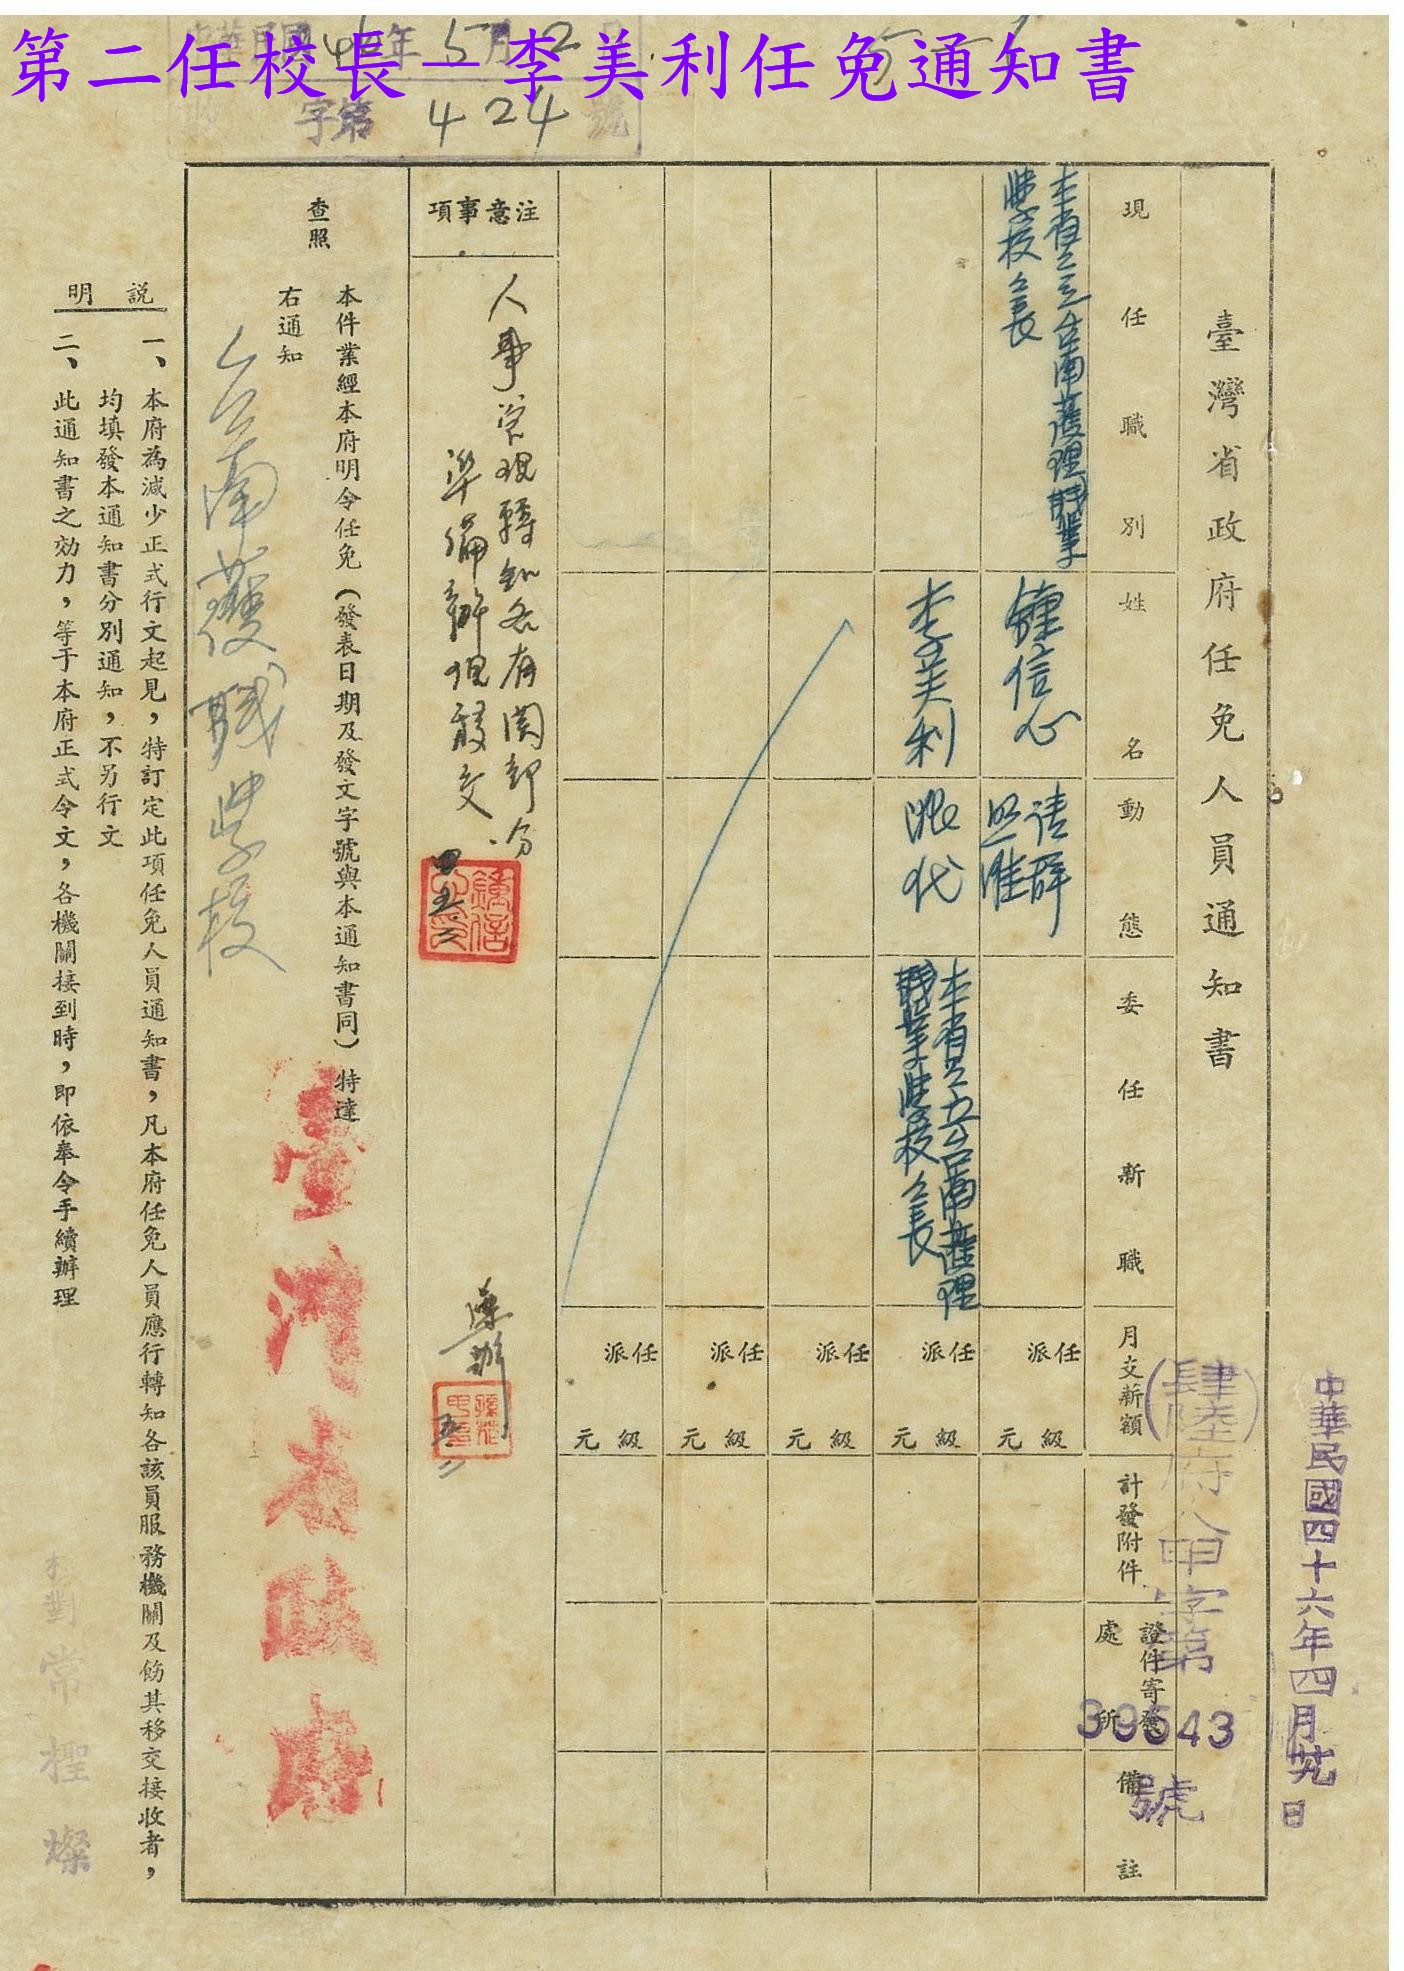 第二任校長－李美利任免通知書
中華民國46年5月2日
收字第424號
中華民國四十六年四月廿九日
(肆陸)府人甲字第
39543
號
臺灣省政府任免人員通知書
現任職別
姓名
動態
委任新職
月支薪額
計發附件
證件寄發
處所
備註
本省立台南護理職業
學校校長
鍾信心
請辭
照准
任派
級元
李美利
派代
本省立台南護理
職業學校校長
任派
級元
任派
級元
任派
級元
任派
級元
注意事項
人事管理轉知各有關部分
準備辦理移交
四六、五、二
遵辦
五、二
本件業經本府明令任免（發表日期及發文字號與本通知書同）特達
查照
右通知
台南護職學校
臺灣省政府
說明
一、本府為減少正式行文起見，特訂定此項任免人員通知書，凡本府任免人員應行轉知各該員服務機關及飭其移交接收者，
均填發本通知書分別通知，不另行文
二、此通知書之効力，等于本府正式令文，各機關接到時，即依奉令手續辦理
校對常櫻燦